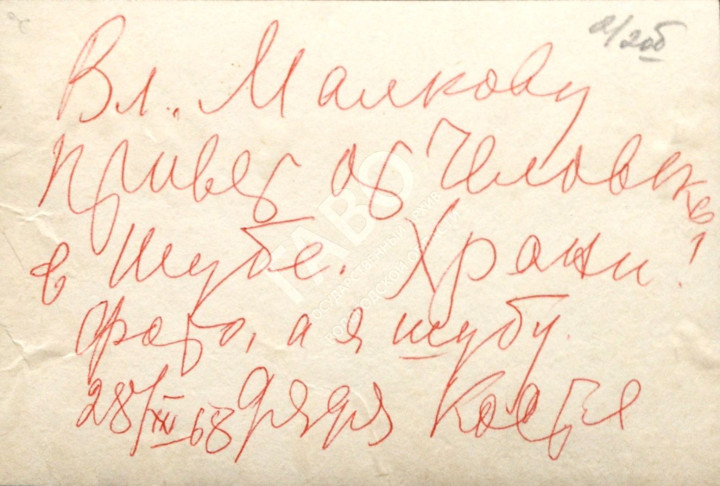 а/20б
Вл. Малкову
привет от Человека
в шубе. Храни!
фото, а я шубу.
28/XII 68 дядя Костя
ГАВО